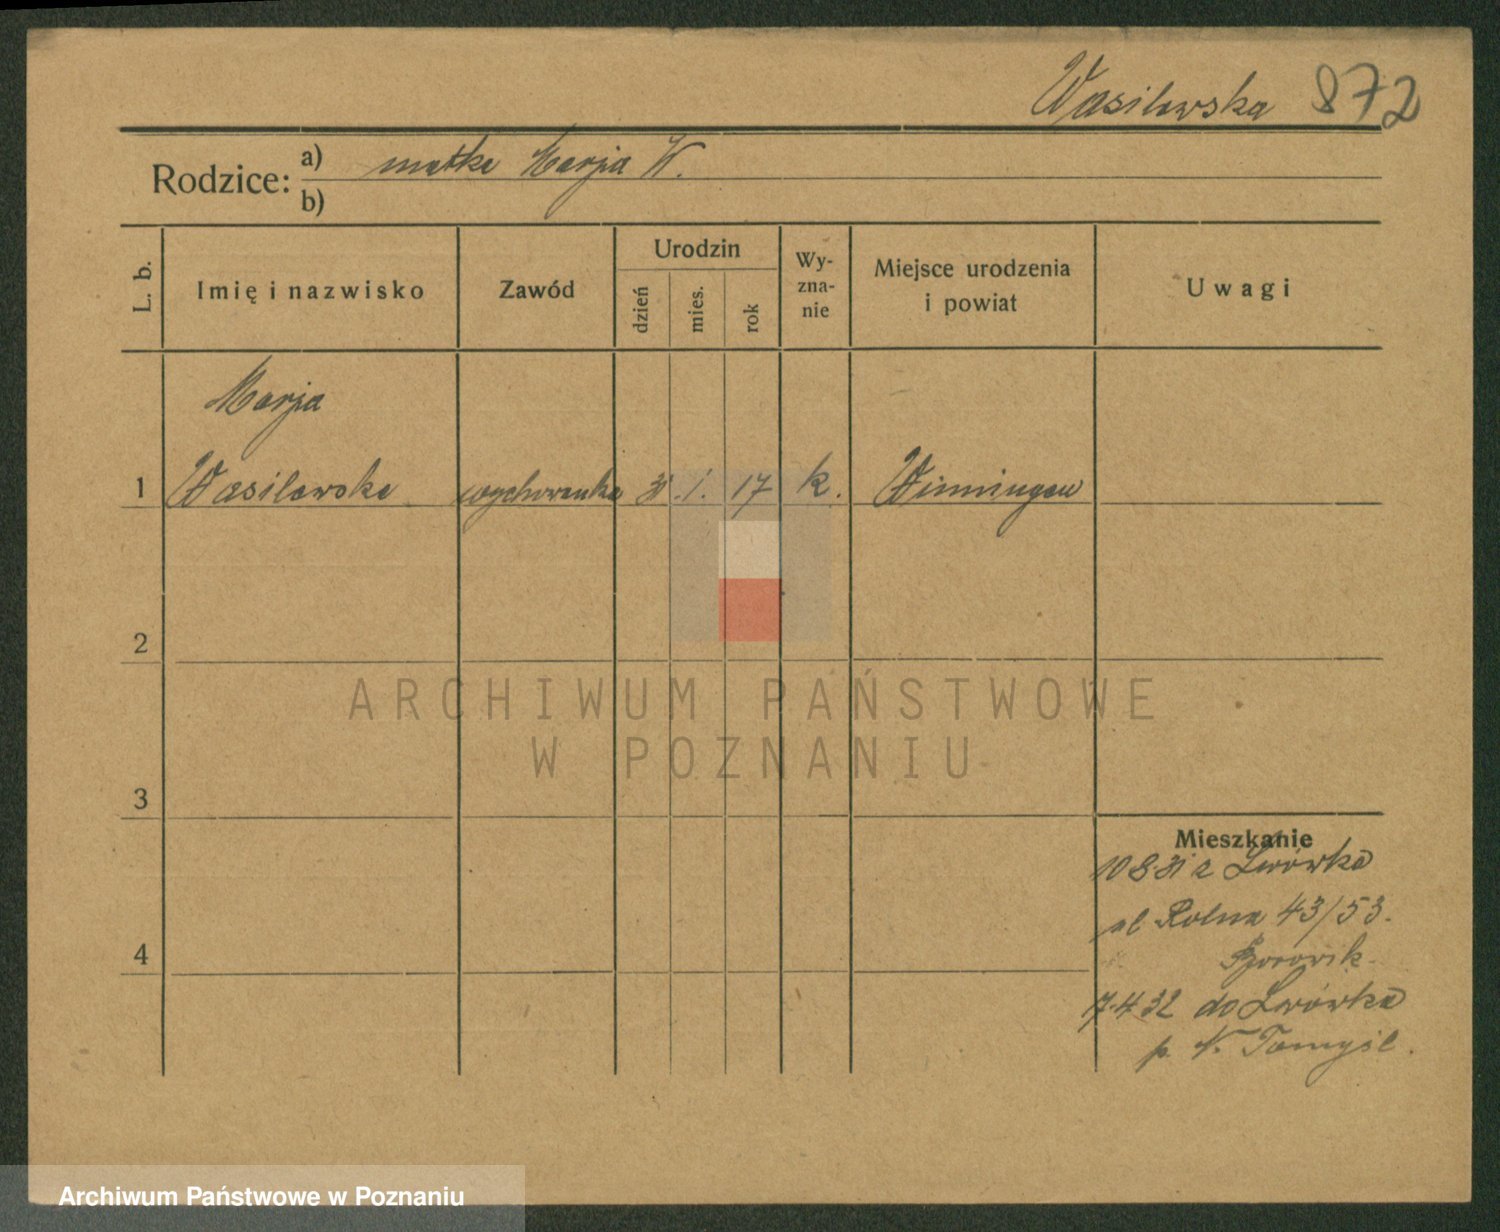 Wasilewska 872
Rodzice:
a) matka Marja W.
b)
L. b.
Imię i nazwisko
Zawód
Urodzin
dzień
mies.
rok
Wy-
zna-
nie
Miejsce urodzenia
i powiat
Uwagi
Marja
1 Wasilewska wychowanka 31. 1. 17 k. Winningen
2
ARCHIWUM PAŃSTWOWE
W POZNANIU
3
Mieszkanie
10 8. 31 z Lwówka
ul Rolna 43/53.
4
7. 4 32 do Lwówka
p. N. Tomyśl.
Archiwum Państwowe w Poznaniu